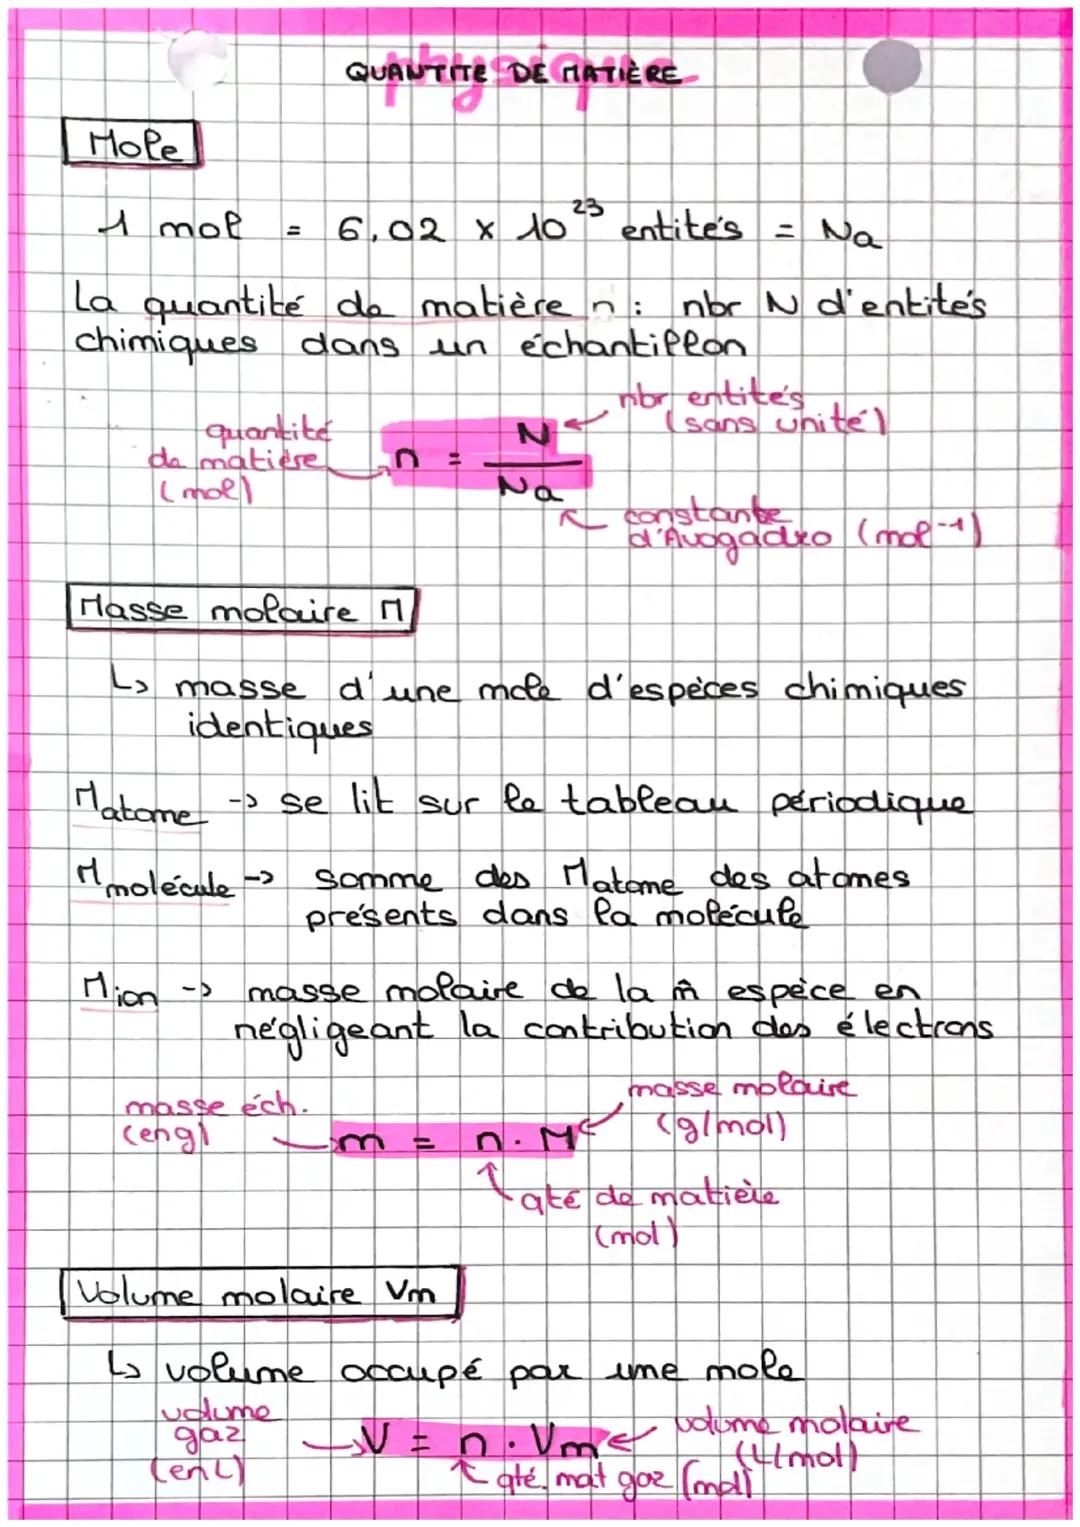 physique
QUANTITE DE MATIÈRE
Mole
1 mol = 6,02 × 10²³ entités = Na
La quantité de matière n : nbr N d'entités
chimiques dans un échantillon
nbr entités
(sans unité)
quantité
de matière
(mol)
n = N / Na
constante
d'Avogadro (mol⁻¹)
Masse molaire M
↳ masse d'une mole d'espèces chimiques
identiques
Matome -> se lit sur le tableau périodique
Mmolécule -> somme des Matome des atomes
présents dans la molécule
Mion -> masse molaire de la m̂ espèce en
négligeant la contribution des électrons
masse éch.
(en g)
masse molaire
(g/mol)
m = n . M
qté de matière
(mol)
Volume molaire Vm
↳ volume occupé par une mole
volume
gaz
(en L)
V = n . Vm
volume molaire
(L/mol)
qté. mat gaz (mol)